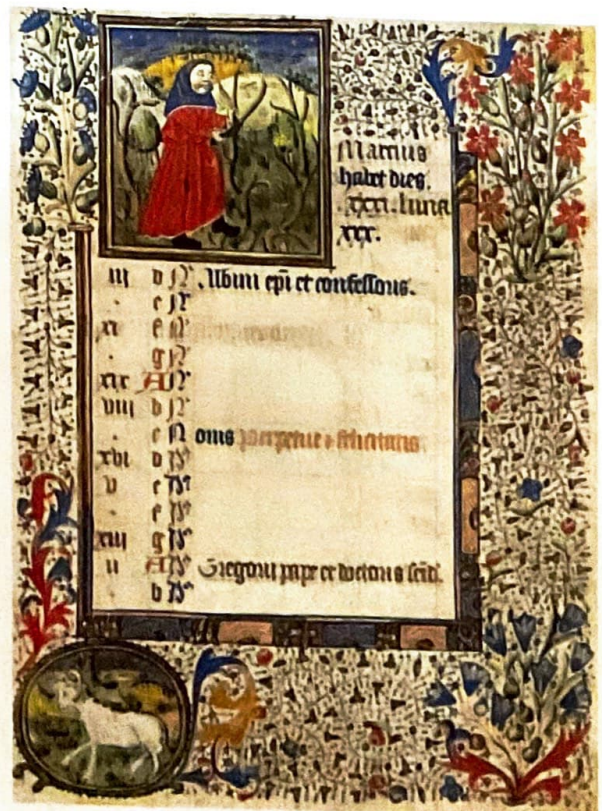 Marcius
habet dies.
.xxxi. luna
xxx.
iii d N. Albini epi et confessoris.
. e N
xi f N
. g N
xix A N
viii b N
. c N onis perpetue & felicitatis.
xvi d Id
v e Id
. f Id
xiii g Id
ii A Id Gregorii pape et doctoris
b Id